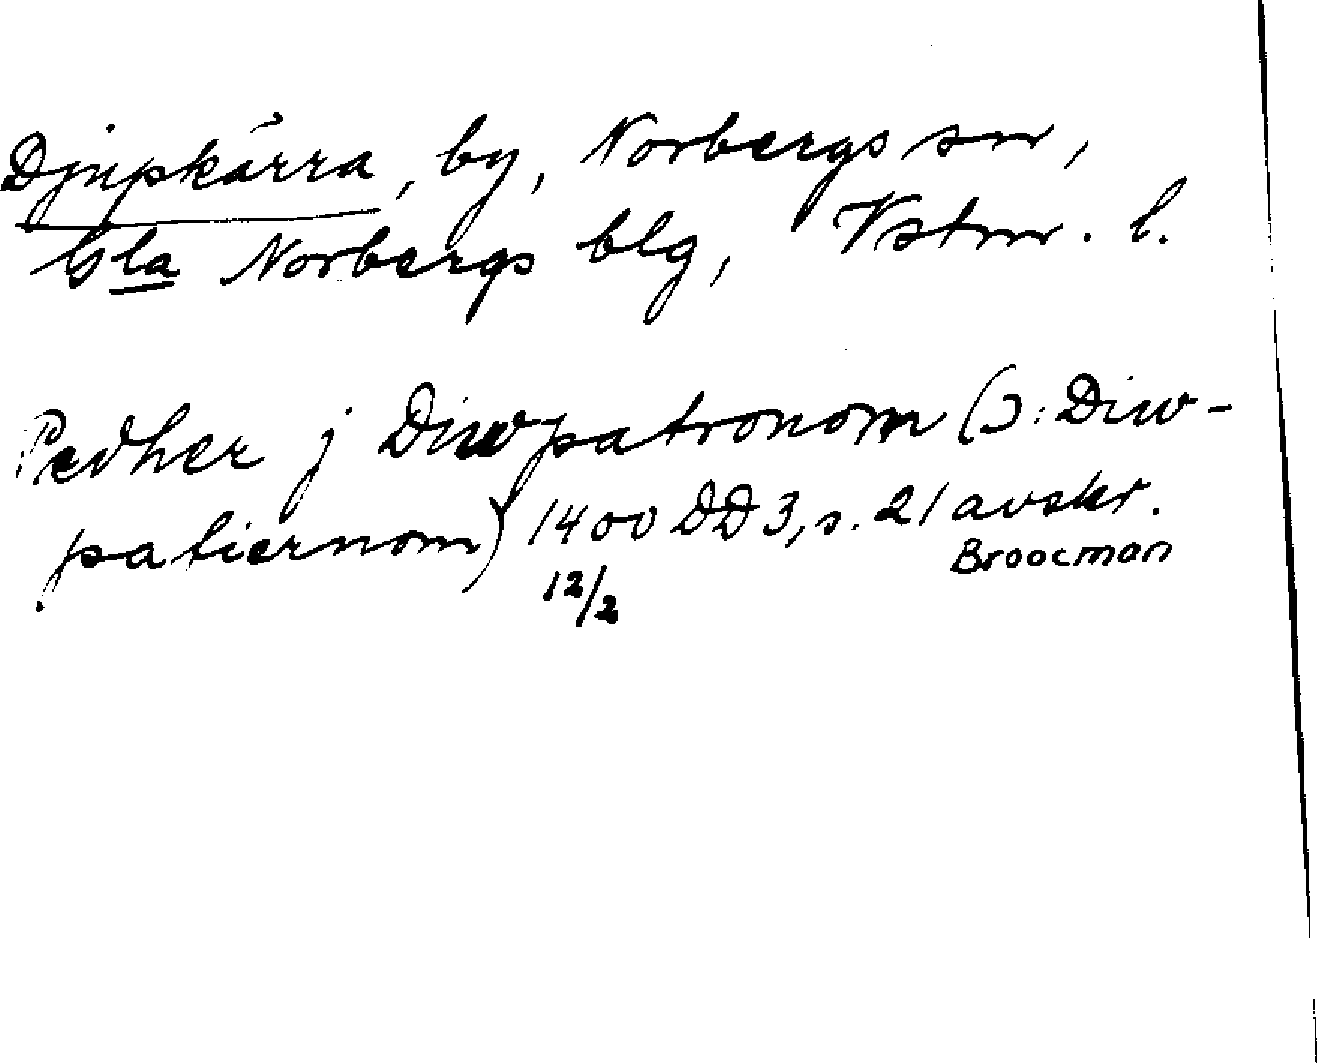 Djupkärra, by, Norbergs sn,
Gla Norbergs blg, Vstm. l.
Pedher j Diwpatronom (ɔ: Diw-
patiernom) 1400 DD 3, s. 21 avskr.
12/2 Broocman